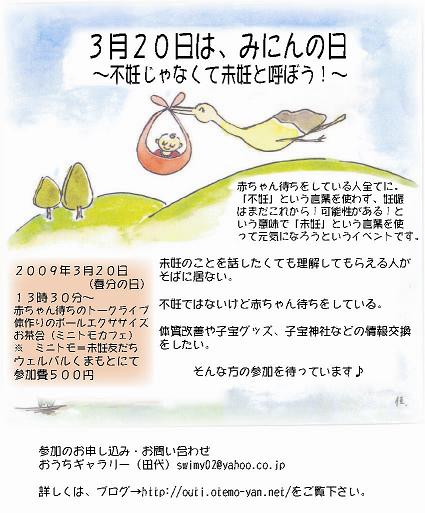 3月20日は、みにんの日
～不妊じゃなくて未妊と呼ぼう！～
赤ちゃん待ちをしている人全てに。
「不妊」という言葉を使わず、妊娠
はまだこれから！可能性がある！と
いう意味で「未妊」という言葉を使
って元気になろうというイベントです。
2009年3月20日
（春分の日）
13時30分～
赤ちゃん待ちのトークライブ
体作りのボールエクササイズ
お茶会（ミニトモカフェ）
※　ミニトモ＝未妊友だち
ウェルパルくまもとにて
参加費500円
未妊のことを話したくても理解してもらえる人が
そばに居ない。
不妊ではないけど赤ちゃん待ちをしている。
体質改善や子宝グッズ、子宝神社などの情報交換
をしたい。
そんな方の参加を待っています♪
参加のお申し込み・お問い合わせ
おうちギャラリー（田代）swimy02@yahoo.co.jp
詳しくは、ブログ→http://outi.otemo-yan.net/をご覧下さい。